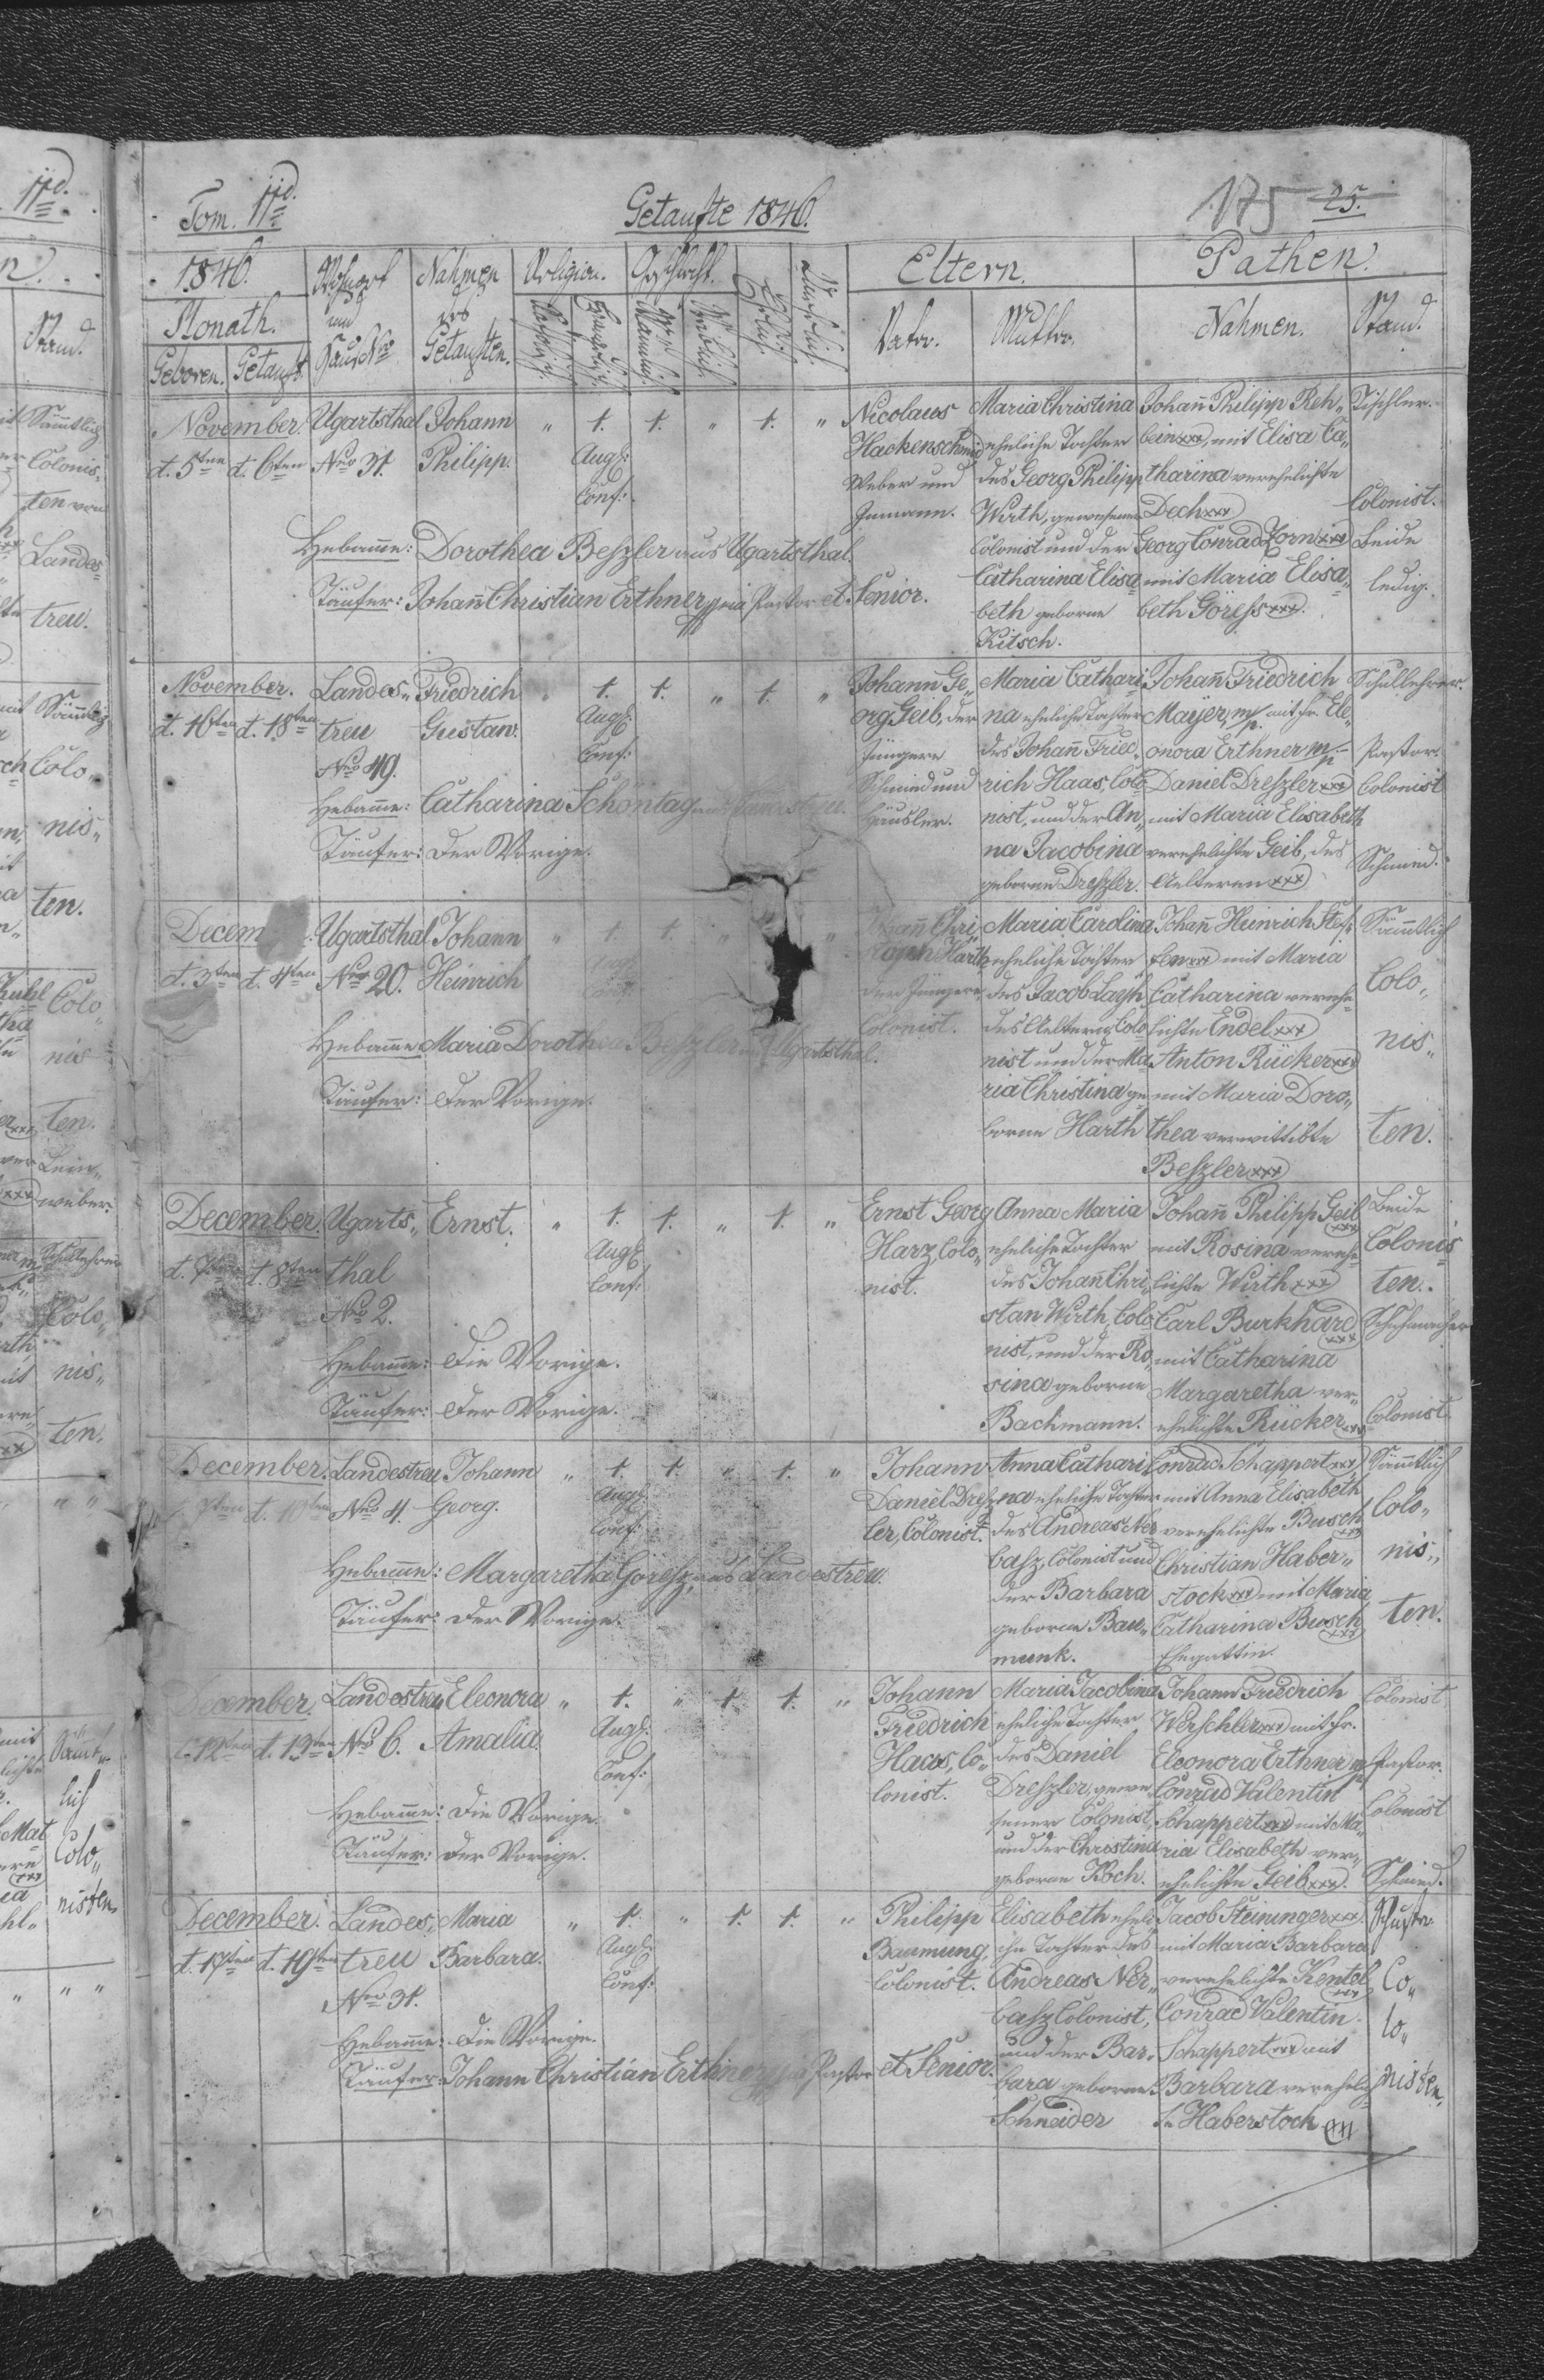 Tom. IId.
Getaufte 1846.
175 25.
1846.
Wohnort und Haus Nro
Nahmen des Getauften.
Religion.
Geschlecht.
Eltern.
Pathen.
Monath.
Geboren. Getauft.
Katholisch. Evangelisch.
Männlich. Weiblich.
Ehelich. Unehelich.
Vater. Mutter.
Nahmen. Stand.
November. d. 5ten d. 6ten
Ugartsthal Nro 31.
Johann Philipp.
" 1. 1. " 1. "
Augs: Conf:
Nicolaus
Hackenschmid
Weber und
Inmann.
Maria Christina
eheliche Tochter
des Georg Philipp
Wirth, gewesener
Colonist und der
Catharina Elisa-
beth geborne
Kitsch.
Johañ Philipp Reh„
bein xxx, mit Elisa Ca„
tharina verehelichte
Dech xxx
Georg Conrad Zorn xxx
mit Maria Elisa„
beth Göress xxx.
Tischler.
Colonist.
Beide
ledig.
Hebame: Dorothea Beszler aus Ugartsthal.
Täufer: Johañ Christian Erthner Pastor et Senior.
November. d. 16ten d. 18ten
Landes„
treu
Nro 49.
Friedrich
Gustav.
" 1. 1. " 1. "
Augs: Conf:
Johann Ge„
org Geib, der
Jüngere
Schmied und
Häusler.
Maria Cathari-
na eheliche Tochter
des Johañ Fried-
rich Haas, Colo
nist, und der An„
na Jacobina
geborne Dreszler.
Johañ Friedrich
Mayer, mp. mit Fr. Ele„
onora Erthner mp
Daniel Dreszler xxx
mit Maria Elisabeth
verehelichte Geib, des
Aelteren xxx
Schullehrer.
Pastor.
Colonist
Schmied.
Hebame: Catharina Schontag aus Landestreu.
Täufer: Der Vorige.
Decem
d. 3ten d. 4ten
Ugartsthal
Nro 20.
Johann
Heinrich
" 1. 1. "
Augs: Conf:
Johañ Chri„
stoph Harth
der Jüngere,
Colonist.
Maria Carolina
eheliche Tochter
des Jacob
des Aeltern, Colo
nist und der Ma
ria Christina ge
borne Harth
Johañ Heinrich
xxx mit Maria
Catharina verehe„
lichte Endel xxx
Anton Rücker xxx
mit Maria Doro„
thea verwittibte
Beszler xxx
Sämmtlich
Colo„
nis„
ten.
Hebame Maria Dorothea Beszler aus Ugartsthal.
Täufer: Der Vorige.
December.
d. 7ten d. 8ten
Ugarts„
thal
Nro 2.
Ernst.
" 1. 1. " 1. "
Augs: Conf:
Ernst Georg
Harz, Colo„
nist.
Anna Maria
eheliche Tochter
des Johañ Chri„
stan Wirth, Colo
nist, und der Ro„
sina geborne
Bachmann.
Johañ Philipp Geib xxx
mit Rosina verehe„
lichte Wirth xxx
Carl Burkhard xxx
mit Catharina
Margaretha ver„
ehelichte Rücker xxx
Beide
Colonis
ten.
Schuhmacher
Colonist.
Hebame: Die Vorige.
Täufer: Der Vorige.
December.
7ten d. 10ten
Landestreu
Nro 4.
Johann
Georg.
" 1. 1. " 1. "
Augs: Conf:
Johann
Daniel Dresz
ler, Colonist.
Anna Cathari
na eheliche Tochter
des Andreas Ner
basz, Colonist und
der Barbara
geborne Bau„
munk.
Conrad Schappert xxx
mit Anna Elisabeth
verehelichte Busch xxx
Christian Haber„
stock xxx mit Maria
Catharina Busch xxx
Ehegattin.
Sämtlich
Colo„
nis„
ten.
Hebame: Margaretha Göresz, aus Landestreu.
Täufer: Der Vorige.
December.
d. 12ten d. 13ten
Landestreu
Nro 6.
Eleonora
Amalia.
" 1. " 1. 1. "
Augs: Conf:
Johann
Friedrich
Haas, Co„
lonist.
Maria Jacobina
eheliche Tochter
des Daniel
Dreszler, gewe
sener Colonist,
und der Christina
geborne Koch.
Johann Friedrich
Werschler xxx mit Fr.
Eleonora Erthner mp
Conrad Valentin
Schappert xxx mit Ma„
ria Elisabeth ver„
ehelichte Geib xxx.
Colonist.
Pastor.
Colonist
Schmied.
Hebame: Die Vorige.
Täufer: Der Vorige.
December.
d. 17ten d. 19ten
Landes„
treu
Nro 31.
Maria
Barbara.
" 1. " 1. 1. "
Augs: Conf:
Philipp
Baumung,
Colonist.
Elisabeth eheli
che Tochter des
Andreas Ner„
basz Colonist,
und der Bar„
bara geborne
Schneider
Jacob Steininger xxx
mit Maria Barbara
verehelichte Kentel xxx
Conrad Valentin
Schappert xxx mit
Barbara verehelich
te Haberstock xxx
Schuster
Co„
lo„
nisten.
Hebame: Die Vorige.
Täufer: Johann Christian Erthner Pastor et Senior.